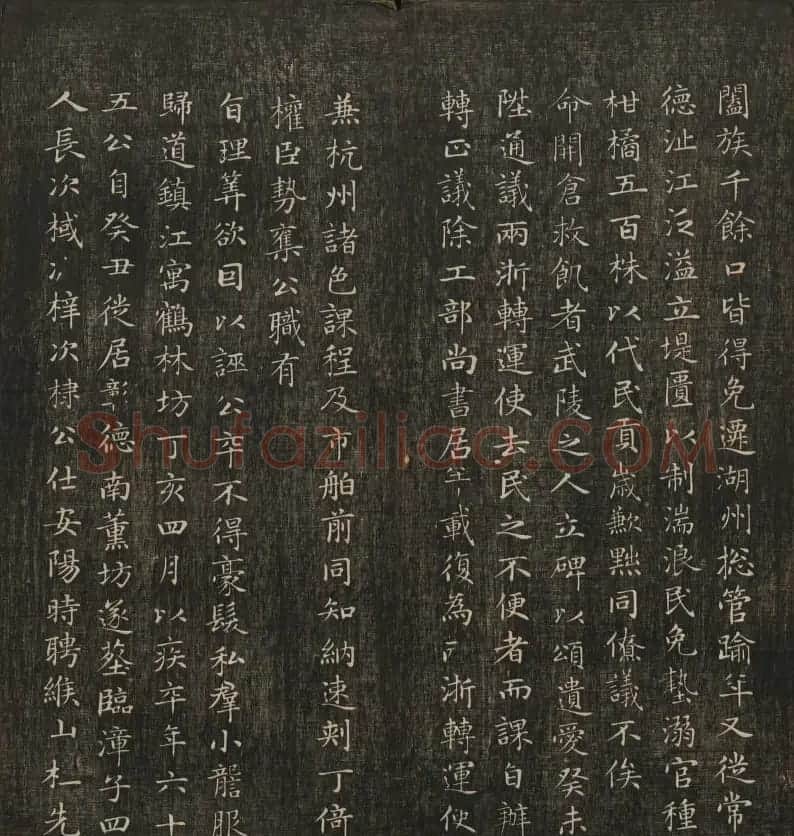 闔族千餘口皆得免遷湖州捴管踰年又従常
德沚江泛溢立堤匽以制湍浪民免墊溺官種
柑橘五百株以代民貢歲歉黙同僚議不俟
命開倉救飢者武陵之人立碑以頌遺愛癸未
陞通議兩浙轉運使去民之不便者而課自辦
轉正議除工部尚書居年載復為 浙轉運使
兼杭州諸色課程及市舶前同知納速剌丁倚
權臣勢奪公職有
旨理筭欲因以誣公卒不得豪髮私羣小讋服
歸道鎮江寓鶴林坊丁亥四月以疾卒年六十
五公自癸丑徙居彰德南薰坊遂塟臨漳子四
人長次棫次梓次棣公仕安陽時聘緱山杜先
Shufaziliao.COM